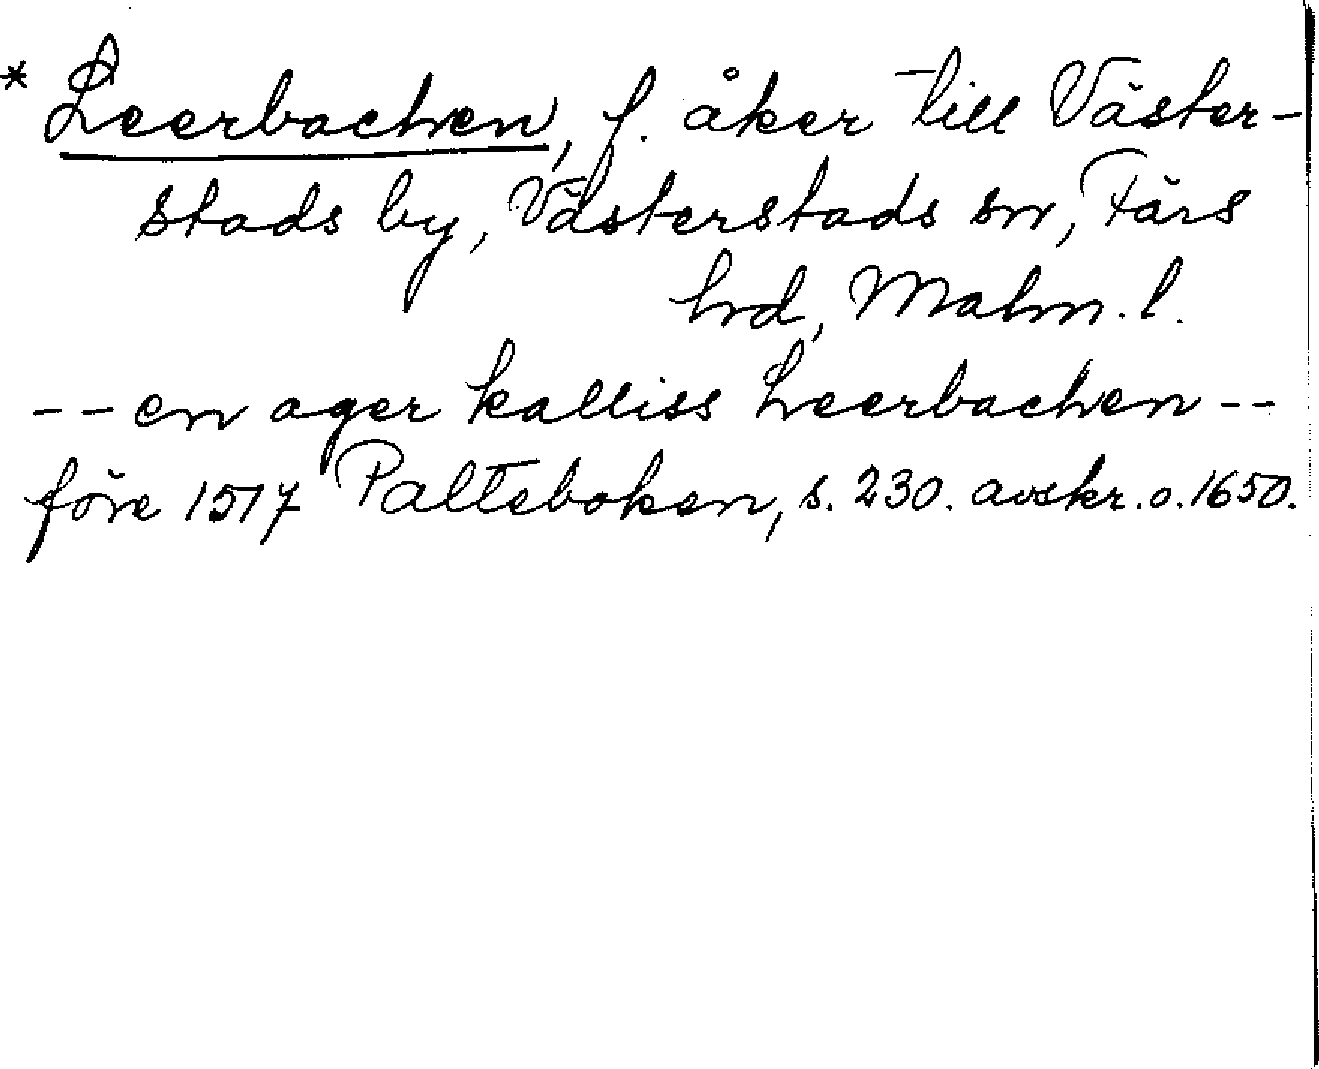 * Leerbachen, f. åker till Väster-
stads by, Västerstads sn, Färs
hd, Malm. l.
-- en ager kalliss Leerbachen --
före 1517 Palteboken, s. 230. avskr. o. 1650.